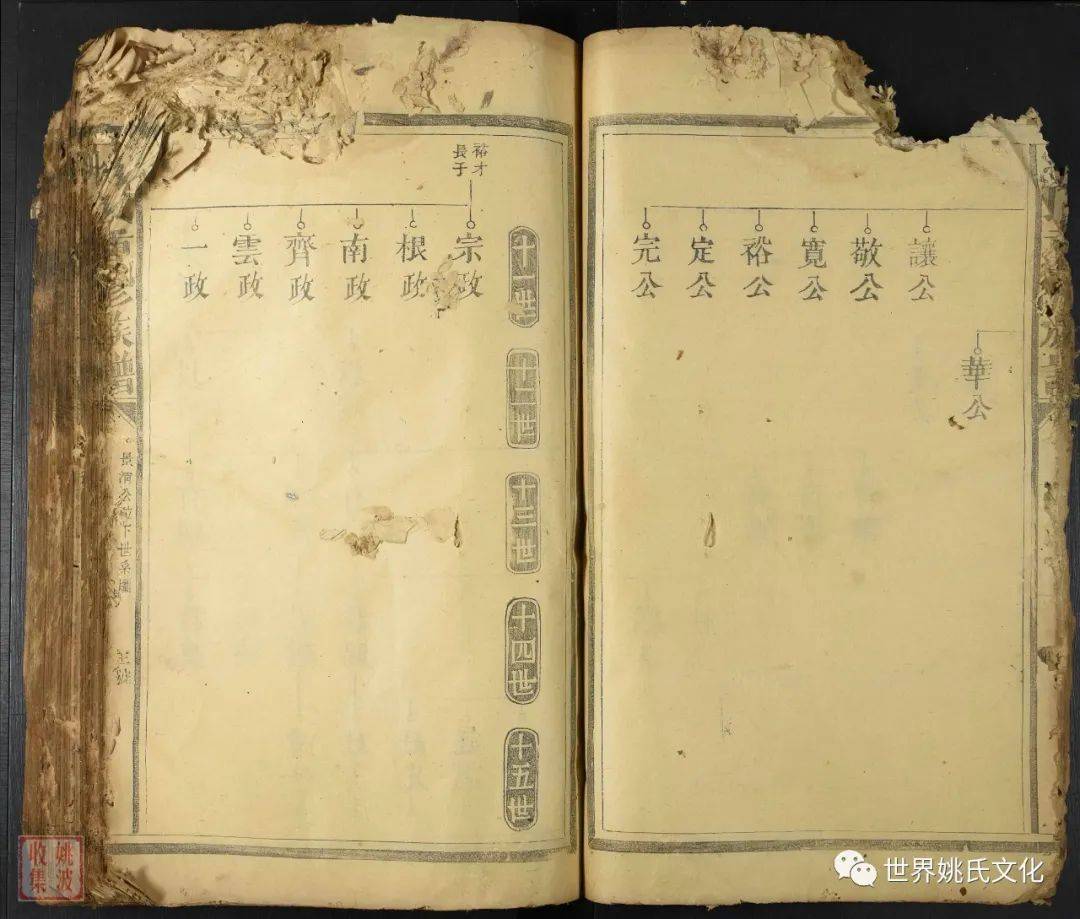 讓公
敬公
寬公
裕公
定公
完公
華公
十一世
十二世
十三世
十四世
十五世
裕才
長子
宗政
根政
南政
齊政
雲政
一政
修族譜
公
下世系圖
姚波
收集
世界姚氏文化